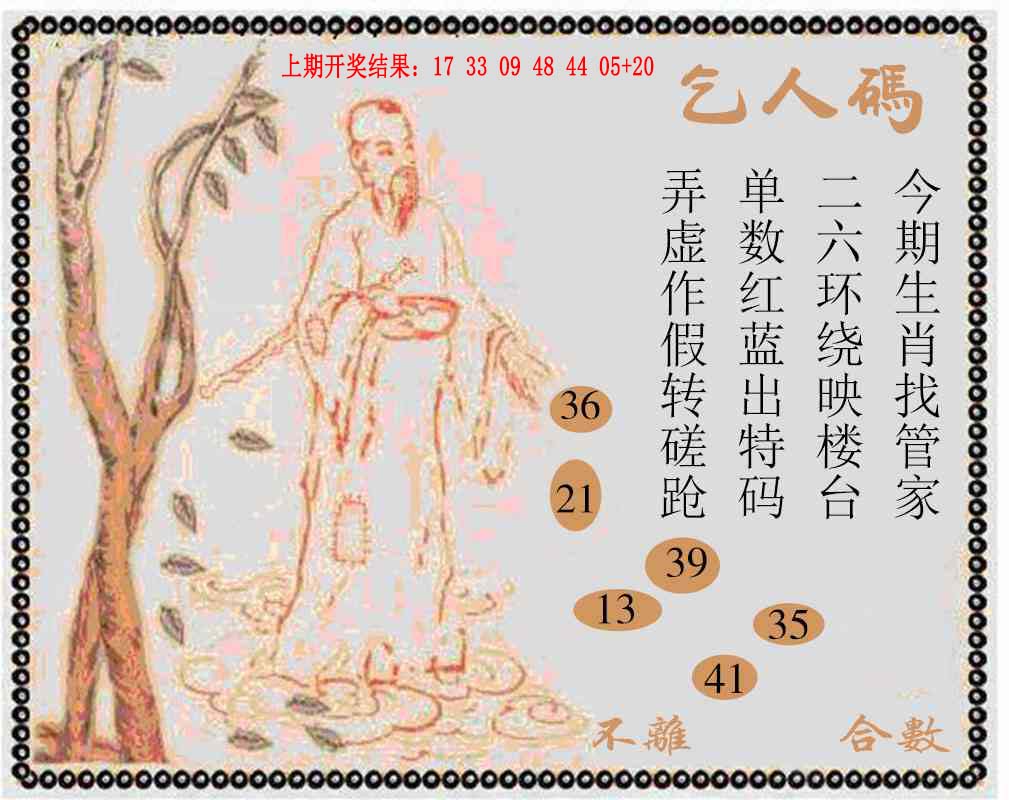 上期开奖结果：17 33 09 48 44 05+20
乞人碼
今期生肖找管家
二六环绕映楼台
单数红蓝出特码
弄虚作假转磋跄
36
21
39
13
35
41
不離
合數